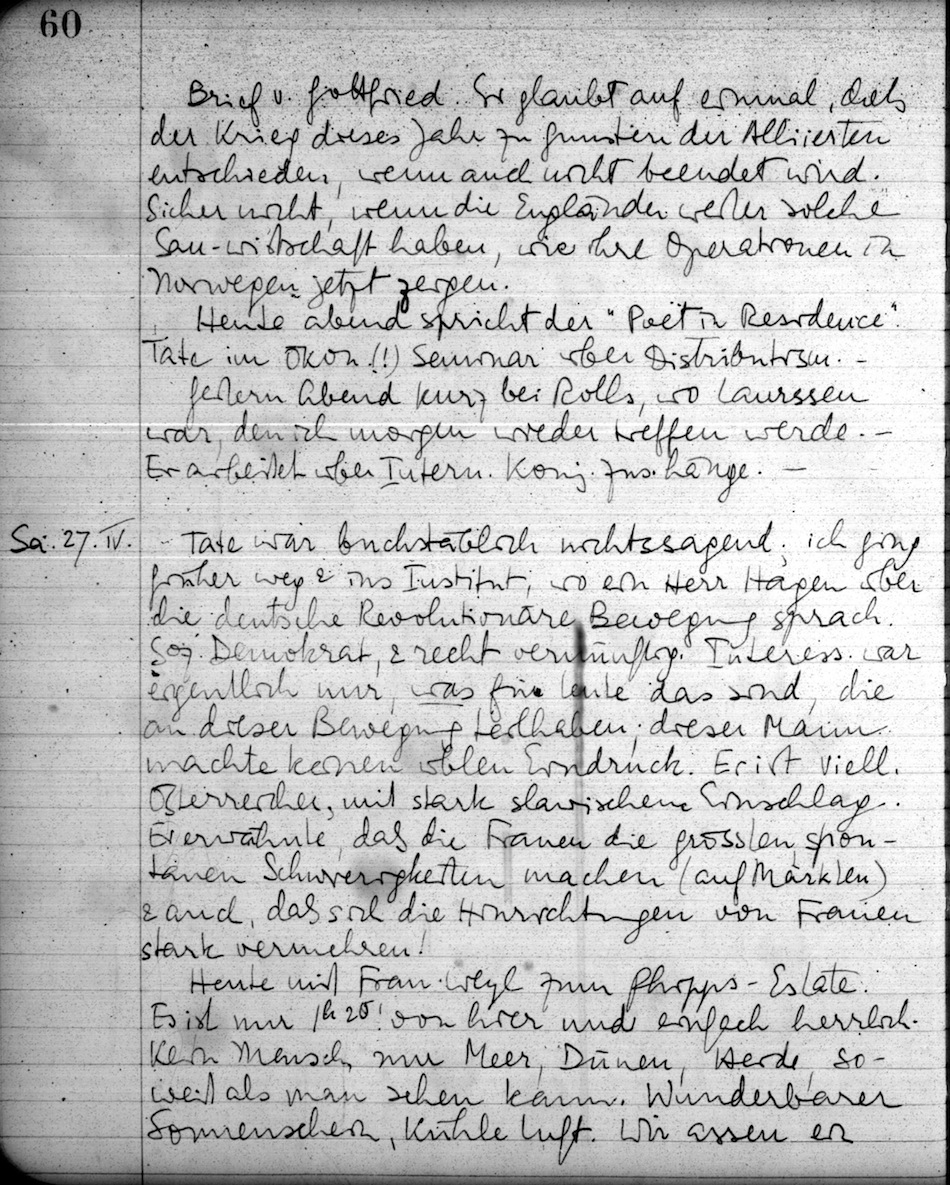 60
Brief v. Gottfried. Er glaubt auf einmal, daß
der Krieg dieses Jahr zu gunsten der Alliierten
entschieden, wenn auch nicht beendet wird.
Sicher nicht, wenn die Engländer weiter solche
Sau-wirtschaft haben, wie ihre Operationen in
Norwegen jetzt zeigen.
Heute abend spricht der "Poet in Residence"
Tate im Ökon (!) Seminar über Distributism. -
Gestern Abend kurz bei Rolls, wo Laurssen
war, den ich morgen wieder treffen werde. -
Er arbeitet über Intern. Konj. Zus.hänge. -
Sa. 27. IV. - Tate war buchstäblich nichtssagend; ich ging
früher weg & ins Institut, wo ein Herr Hagen über
die deutsche Revolutionäre Bewegung sprach.
Soz. Demokrat, & recht vernünftig. Interess. war
eigentlich nur, was für Leute das sind, die
an dieser Bewegung teilhaben; dieser Mann
machte keinen üblen Eindruck. Er ist viell.
Österreicher, mit stark slawischem Einschlag.
Er erwähnte, daß die Frauen die grössten spon-
tanen Schwierigkeiten machen (auf Märkten)
& auch, daß sich die Hinrichtungen von Frauen
stark vermehren!
Heute mit Frau Weyl zum Phipps-Estate.
Es ist nur 1h 20' von hier und einfach herrlich.
Kein Mensch, nur Meer, Dünen, Heide, so-
weit als man sehen kann. Wunderbarer
Sonnenschein, kühle Luft. Wir assen ein